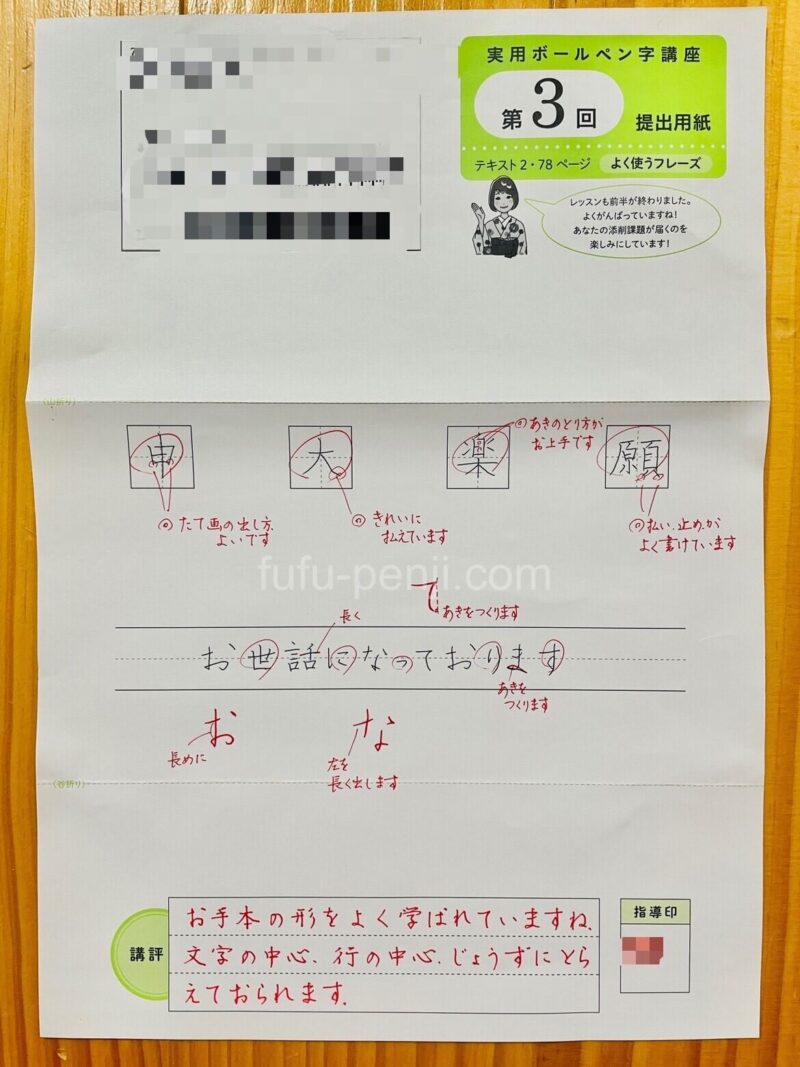 実用ボールペン字講座
第3回 提出用紙
テキスト2・78ページ よく使うフレーズ
レッスンも前半が終わりました。
よくがんばっていますね!
あなたの添削課題が届くのを
楽しみにしています!
(山折り)
申 大 楽 願
◎あきのとり方が
お上手です
◎たて画の出し方、
よいです
◎きれいに
払えています
◎払い、止めが
よく書けています
fufu-penji.com
て
あきをつくります
長く
お世話になっております
あきを
つくります
お
長めに
な
左を
長く出します
(谷折り)
講評
お手本の形をよく学ばれていますね、
文字の中心、行の中心、じょうずにとら
えておられます。
指導印